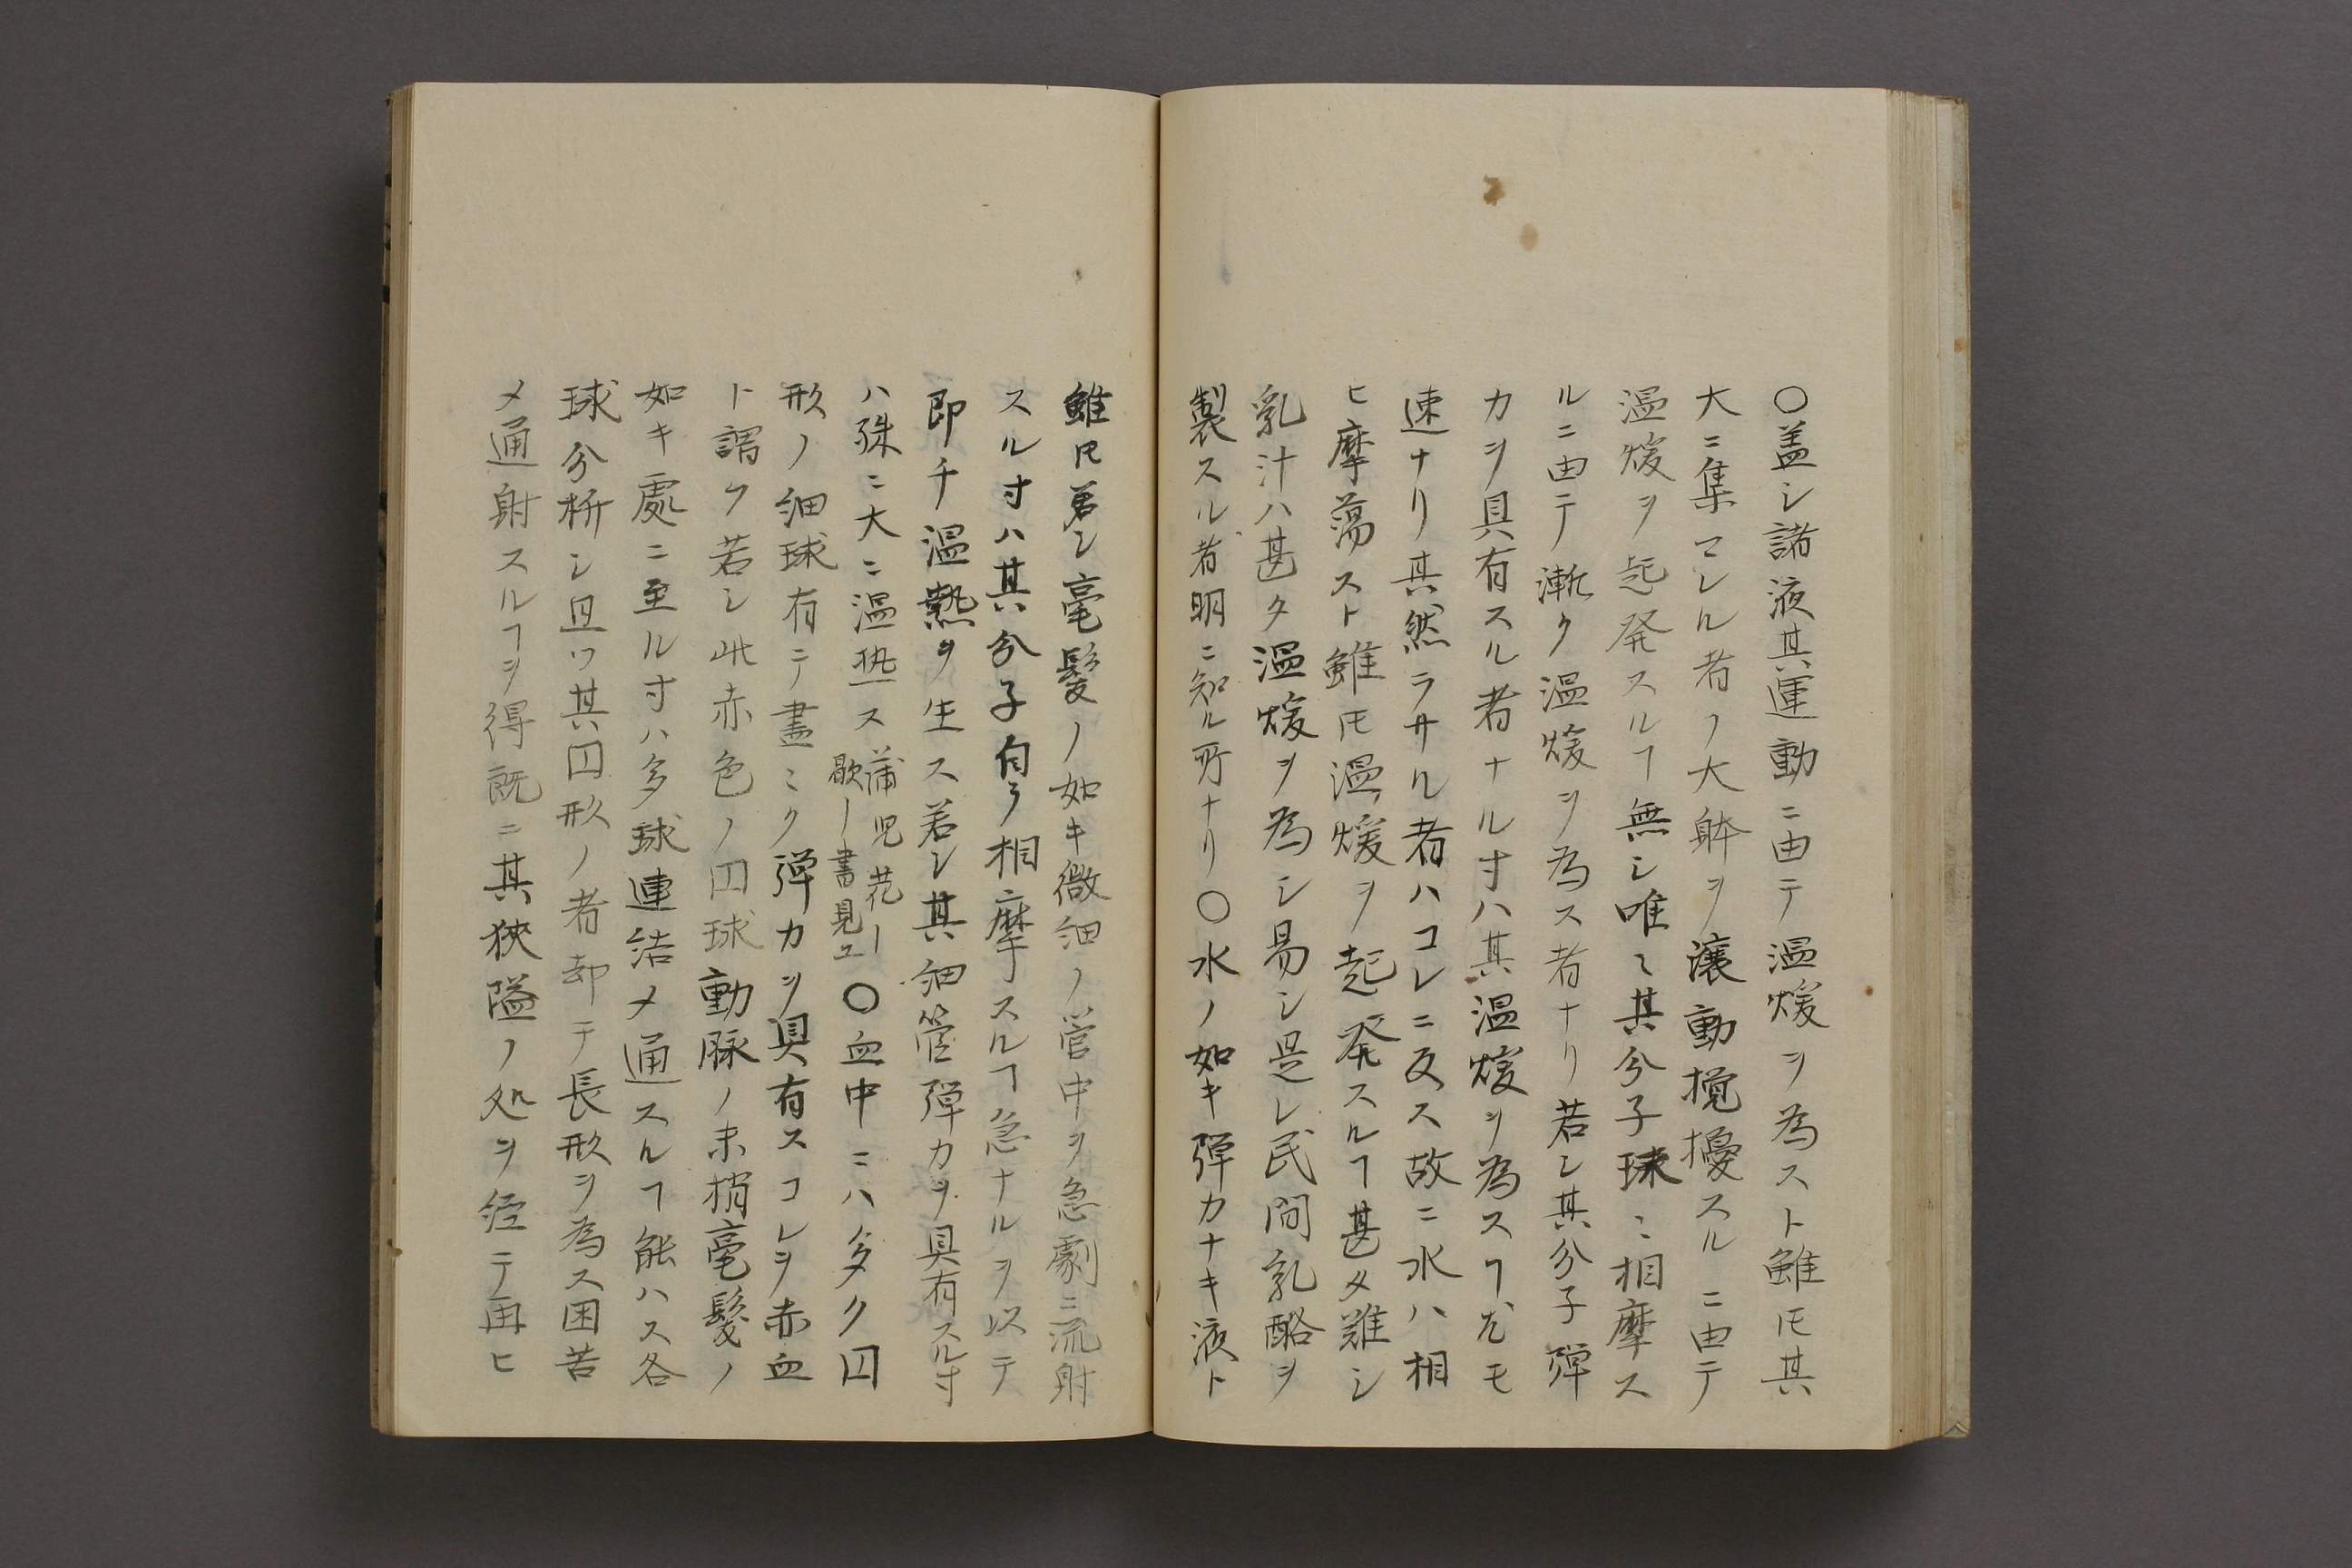 〇盖シ諸液其運動ニ由テ温煖ヲ為スト雖𪜈其
大ニ集マレル者ノ大躰ヲ瀼動攪擾スルニ由テ
温煖ヲ起発スルヿ無シ唯〻其分子球〻相摩ス
ルニ由テ漸ク温煖ヲ為ス者ナリ若シ其分子弾
力ヲ具有スル者ナル寸ハ其温煖ヲ為スヿ尤モ
速ナリ其然ラサル者ハコレニ反ス故ニ水ハ相
ヒ摩蕩スト雖𪜈温煖ヲ起発スルヿ甚タ難シ
乳汁ハ甚タ温煖ヲ為シ易シ是レ民間乳酪ヲ
製スル者明ニ知ル所ナリ〇水ノ如キ弾力ナキ液ト
雖𪜈若シ毫髪ノ如キ微細ノ管中ヲ急劇ニ流射
スル寸ハ其分子自ラ相摩スルヿ急ナルヲ以テ
即チ温熱ヲ生ス若シ其細管弾力ヲ具有スル寸
ハ殊ニ大ニ温热ス蒲児花ー歇ー書見ユ〇血中ニハ多ク囗
形ノ細球有テ盡〻ク弾力ヲ具有スコレヲ赤血
ト謂フ若シ此赤色ノ囗球動脉ノ末梢毫髪ノ
如キ處ニ至ル寸ハ多球連結メ通スルヿ能ハス各
球分析シ且ツ其囗形ノ者却テ長形ヲ為ス困苦
メ通射スルヿヲ得既ニ其狹隘ノ処ヲ経テ再ヒ